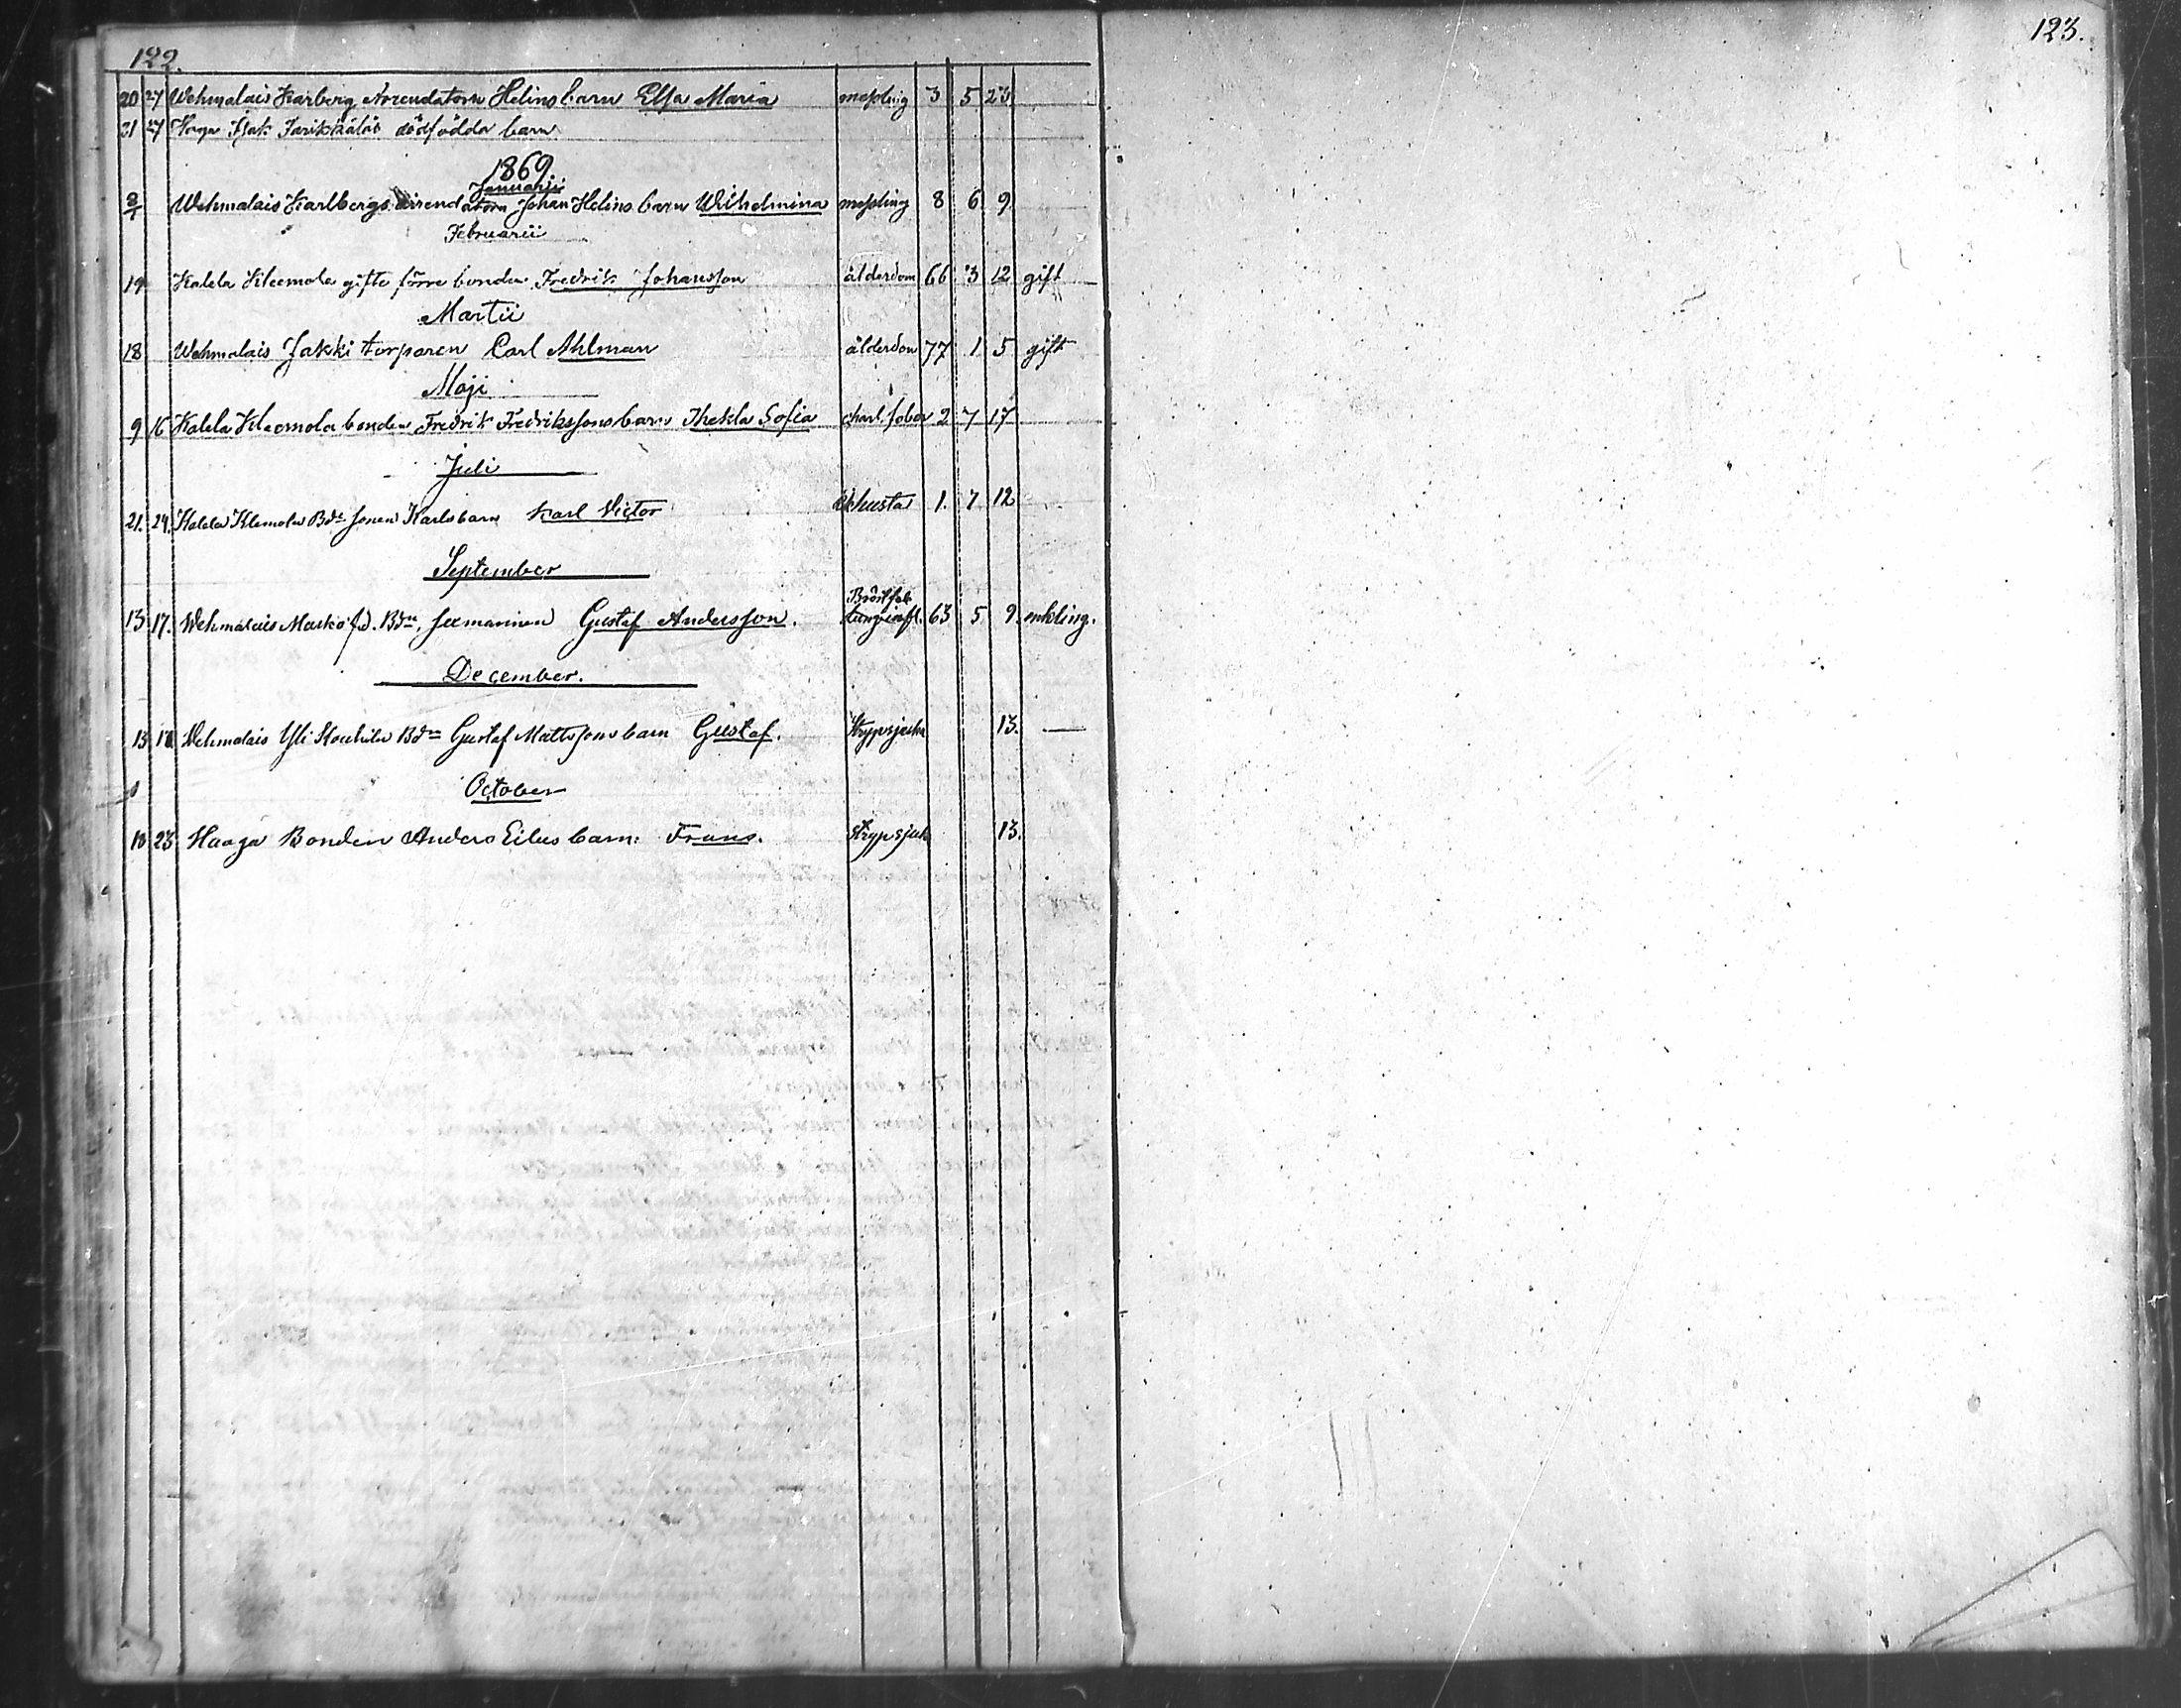 122.
123.
20 27 Wehmalais Karberg Arrendatorn Helins barn Elsa Maria messling 3 5 23
21 27 Haga Isak dödfödda barn
1869
Januarii
8/1 Wehmalais Karlbergs arrendatorn Johan Helins barn Wilhelmina messling 8 6 9
Februarii
19. Kalela Kleemola gifte förre bonden Fredrik Johansson ålderdom 66 3 12 gift
Martii
18 Wehmalais Jakki torparen Carl Ahlman ålderdom 77 1 5 gift
Maji
9 16 Kalela Kleemola bonden Fredrik Fredrikssons barn Thekla Sofia charl. feber 2 7 17
Juli
21. 24. Kalela Klemola Bde sonen Karls barn Karl Victor khusta 1. 7 12
September
Bröst feb
13 17. Wehmalais Markö fd. Bdn. Gustaf Andersson. lunginfl. 63 5 9. enkling.
December.
13 18 Wehmalais Yli Kouhila Bdn Gustaf Mattssons barn Gustaf. Strypsjuka 13. —
October
10 23 Haaga Bonden Anders Eilus barn: Frans. Strypsjuk 13.